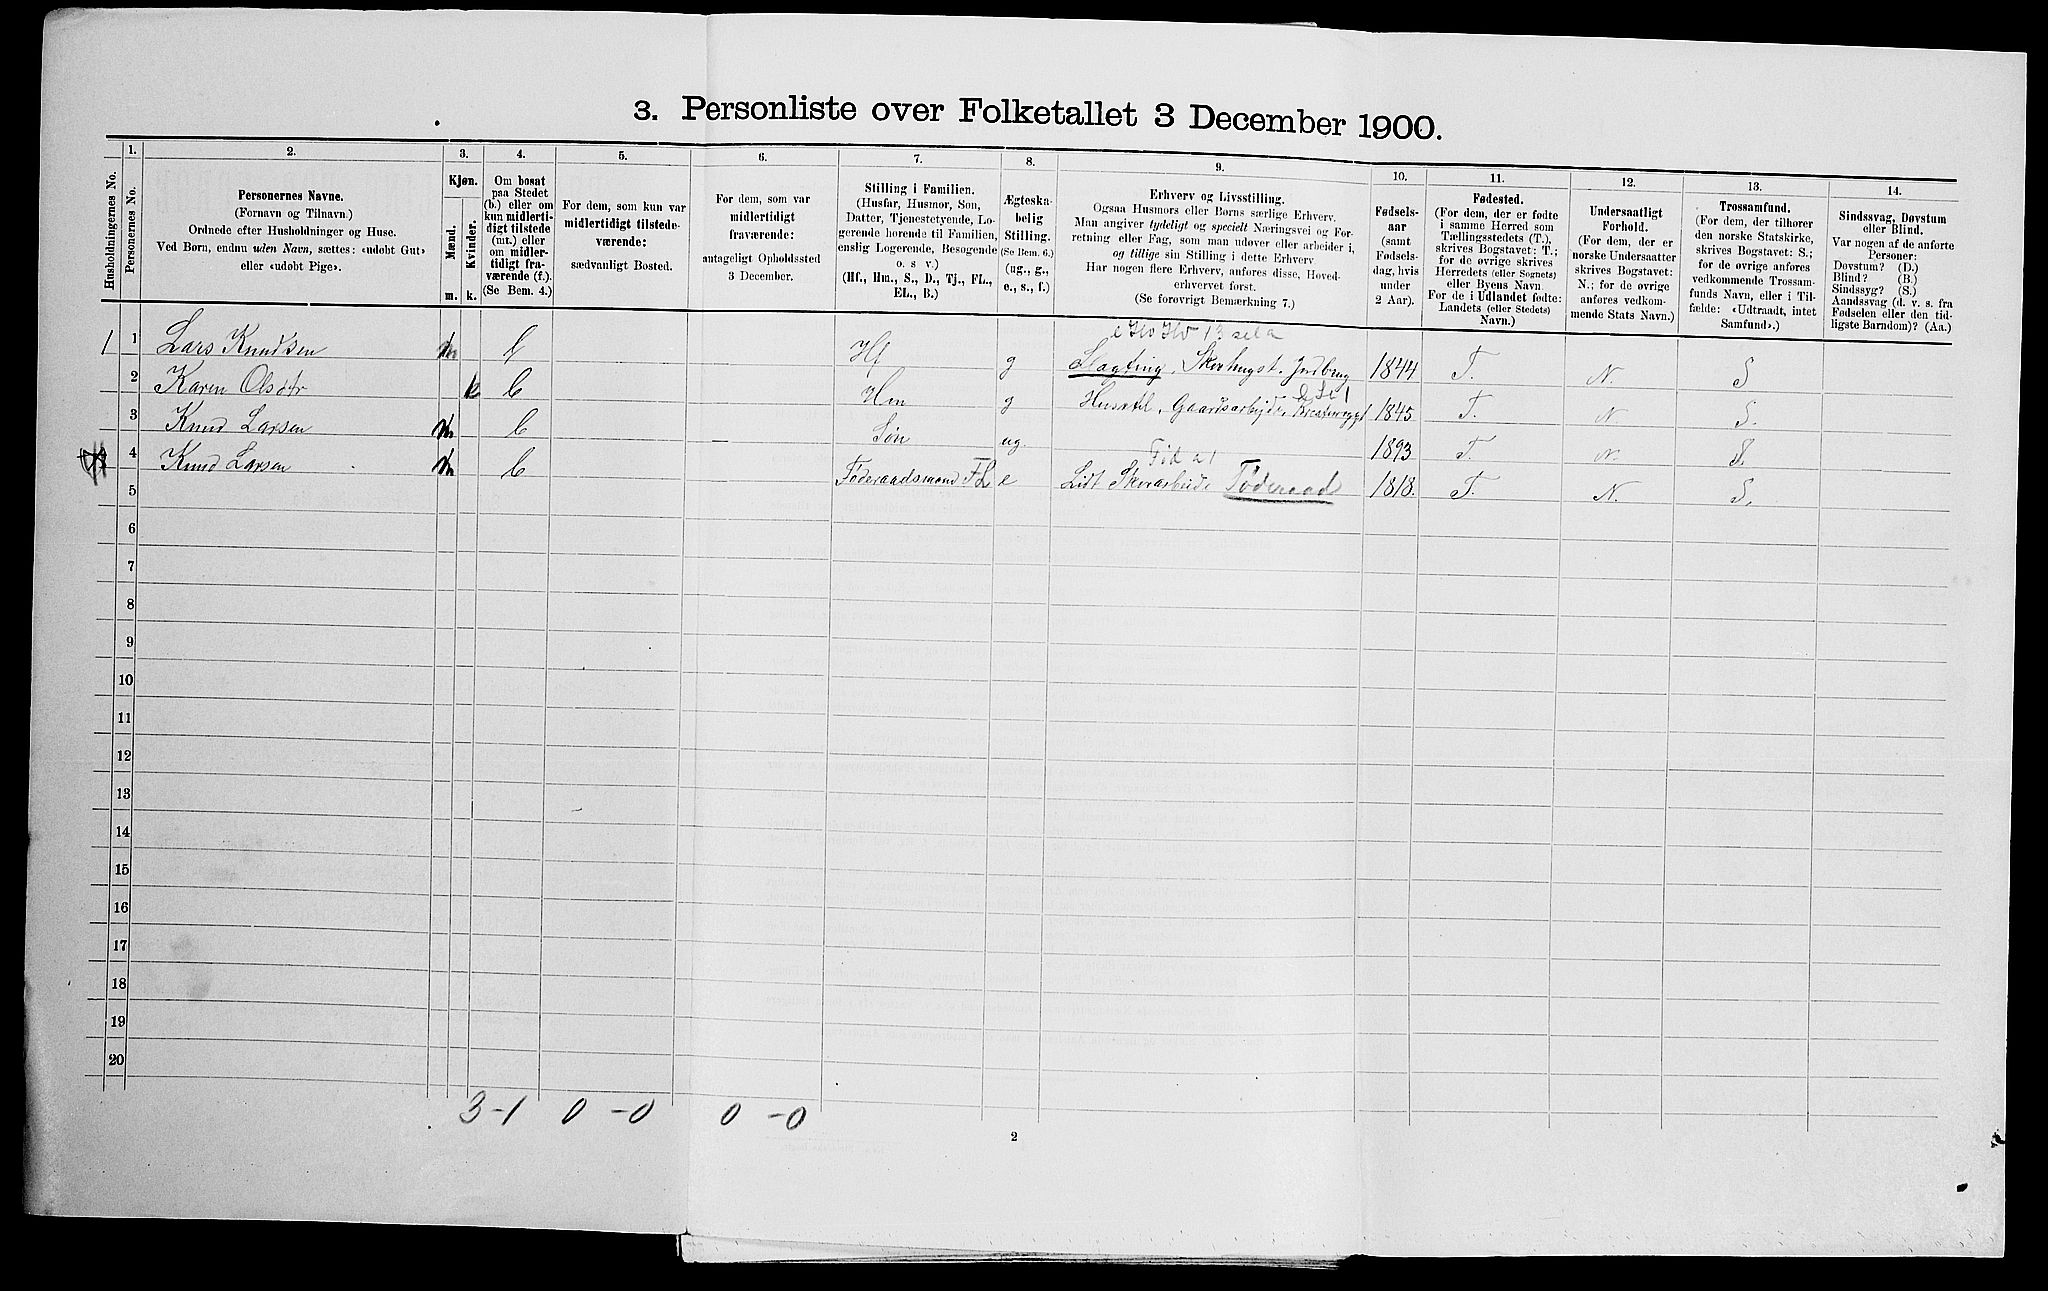 3. Personliste over Folketallet 3 December 1900.
Husholdningernes No.
1.
Personernes No.
2.
Personernes Navne.
(Fornavn og Tilnavn.)
Ordnede efter Husholdninger og Huse.
Ved Børn, endnu uden Navn, sættes: «udøbt Gut»
eller «udøbt Pige».
3.
Kjøn.
Mænd.
Kvinder.
m.
k.
4.
Om bosat
paa Stedet
(b.) eller om
kun midlerti-
digt tilstede
(mt.) eller
om midler-
tidigt fra-
værende (f.).
(Se Bem. 4.)
5.
For dem, som kun var
midlertidigt tilstede-
værende:
sædvanligt Bosted.
6.
For dem, som var
midlertidigt
fraværende:
antageligt Opholdssted
3 December.
7.
Stilling i Familien.
(Husfar, Husmor, Søn,
Datter, Tjenestetyende, Lo-
gerende hørende til Familien,
enslig Logerende, Besøgende
o. s v.)
(Hf., Hm., S., D., Tj., FL.,
EL., B.)
8.
Ægteska-
belig
Stilling.
(Se Bem. 6.)
(ug., g.,
e., s., f.)
9.
Erhverv og Livsstilling.
Ogsaa Husmors eller Børns særlige Erhverv.
Man angiver tydeligt og specielt Næringsvei og For-
retning eller Fag, som man udøver eller arbeider i,
og tillige sin Stilling i dette Erhverv
Har nogen flere Erhverv, anføres disse, Hoved-
erhvervet først.
(Se forøvrigt Bemærkning 7.)
10.
Fødsels-
aar
(samt
Fødsels-
dag, hvis
under
2 Aar).
11.
Fødested.
(For dem, der er fødte
i samme Herred som
Tællingsstedets (T.),
skrives Bogstavet: T.;
for de øvrige skrives
Herredets (eller Sognets)
eller Byens Navn
For de i Udlandet fødte:
Landets (eller Stedets)
Navn.)
12.
Undersaatligt
Forhold.
(For dem, der er
norske Undersaatter
skrives Bogstavet:
N.; for de øvrige
anføres vedkom-
mende Stats Navn.)
13.
Trossamfund.
(For dem, der tilhører
den norske Statskirke,
skrives Bogstavet: S.;
for de øvrige anføres
vedkommende Trossam-
funds Navn, eller i Til-
fælde: «Udtraadt, intet
Samfund».)
14.
Sindssvag, Døvstum
eller Blind.
Var nogen af de anførte
Personer:
Døvstum? (D.)
Blind? (B.)
Sindssyg? (S.)
Aandssvag (d. v. s. fra
Fødselen eller den tid-
ligste Barndom)? (Aa.)
1 1 Lars Knudsen m b Hf g Slagting, Skovhugst. Jordbrug 1844 T. N. S
2 Karen Olsdtr k b Hm g Husstel, Gaardsarbejde, Kreaturrygt 1845 T. N S.
3 Knud Larsen m b Søn ug. 1893 T. N. S.
4 Knud Larsen m b Føderaadsmand FL e Lidt Skovarbeide Føderaad 1818. T. N. S.
5
6
7
8
9
10
11
12
13
14
15
16
17
18
19
20
3-1 0-0 0-0
2